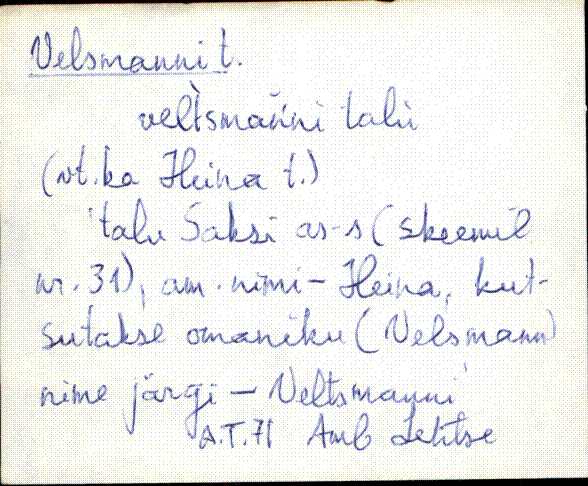 Velsmanni t.
vel̀tsmań̀ni talu
(vt. ka Heina t.)
talu Saksi as-s (skeemil
nr. 31), am. nimi - Heina, kut-
sutakse omaniku (Velsmann)
nime järgi - Veltsmanni
A.T. 71 Amb Lehtse